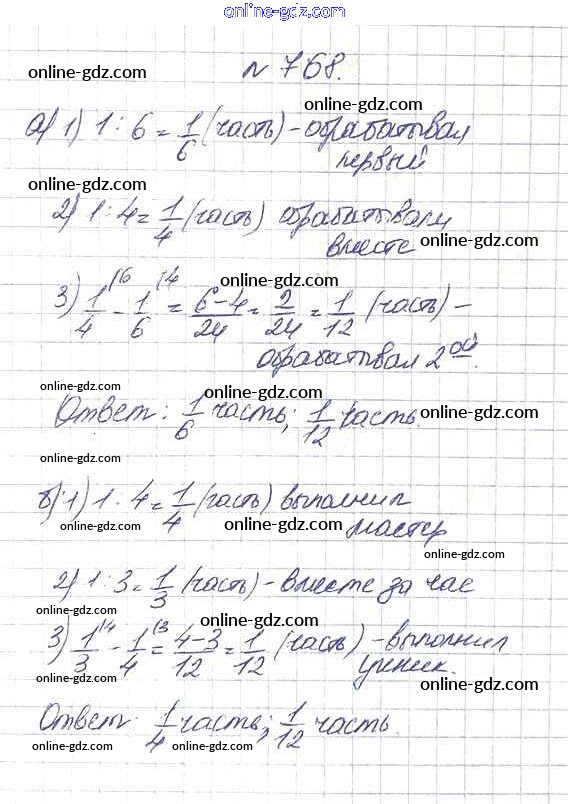 online-gdz.com
online-gdz.com № 768. online-gdz.com
а) 1) 1 : 6 = 1/6 (часть) - обрабатывал
первый
online-gdz.com
2) 1 : 4 = 1/4 (часть) обрабатывали
вместе online-gdz.com
online-gdz.com
3) 1/4 \6 - 1/6 \4 = 6-4/24 = 2/24 = 1/12 (часть) -
обрабатывал 2ой.
online-gdz.com online-gdz.com
Ответ: 1/6 часть; 1/12 часть. online-gdz.com
online-gdz.com
б) 1) 1 : 4 = 1/4 (часть) выполнил
online-gdz.com online-gdz.com мастер
online-gdz.com
2) 1 : 3 = 1/3 (часть) - вместе за час
online-gdz.com online-gdz.com
3) 1/3 \4 - 1/4 \3 = 4-3/12 = 1/12 (часть) - выполнил
ученик.
online-gdz.com
Ответ: 1/4 часть; 1/12 часть.
online-gdz.com online-gdz.com online-gdz.com